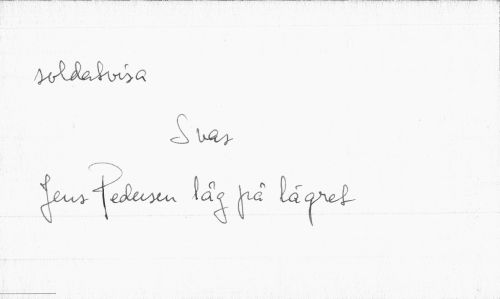 soldatvisa
Svas
Jens Pedersen låg på lägret